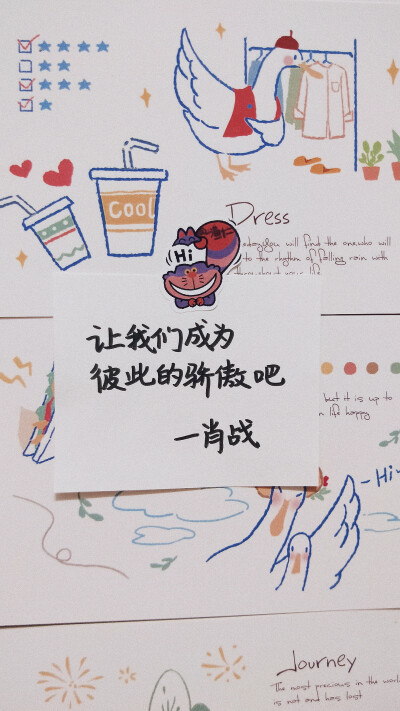 COOL
Dress
you will find the one who will
to the rhythm of falling rain with
Hi
让我们成为
彼此的骄傲吧
一肖战
but it is up to
life happy
Hi
Journey
The most precious in the world
is not and has lost